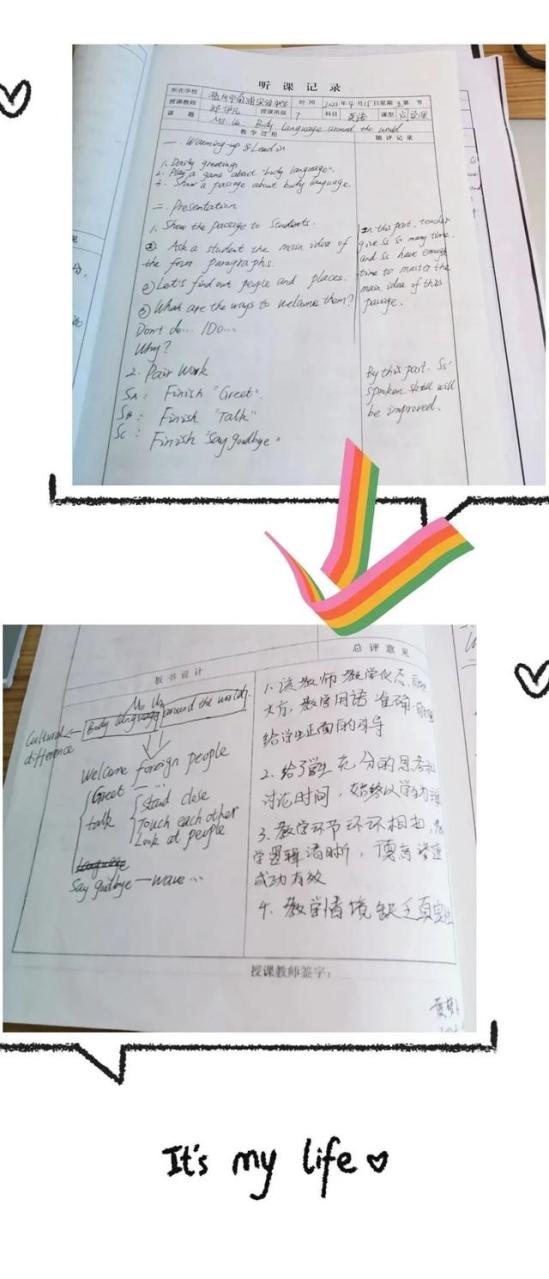 听课记录
所在学校
时间 2022年4月15日星期3第 节
授课教师
授课班级 7
科目 英语
课型 阅读课
课题
M11 U2 Body Language around the world
教学过程
随评记录
一、Warming-up & Lead in
1. Daily greetings
2. Play a game about "body language".
3. Show a passage about body language.
二、Presentation
1. Show the passage to students.
① Ask a student the main idea of
the four paragraphs.
② Let's find out people and places.
③ What are the ways to welcome them?
Don't do... / Do...
Why?
2. Pair Work
SA: Finish "Greet".
SB: Finish "Talk"
SC: Finish "Say goodbye"
In this part, teacher
give Ss so many time.
and Ss have enough
time to master the
main idea of this
passage.
By this part, Ss'
spoken skill will
be improved.
板书设计
总评意见
M11 U2
Body language around the world
Cultural
difference
Welcome foreign people
Greet — ...
talk
Stand close
Touch each other
Look at people
Language
Say goodbye — wave ...
1. 该教师教学仪态
大方，教学用语准确
给学生正面的引导
2. 给了学生充分的思考和
讨论时间，始终以学生为
3. 教学环节环环相扣，
学逻辑清晰，
成功有效
4. 教学情境缺乏真实
授课教师签字：
It's my life